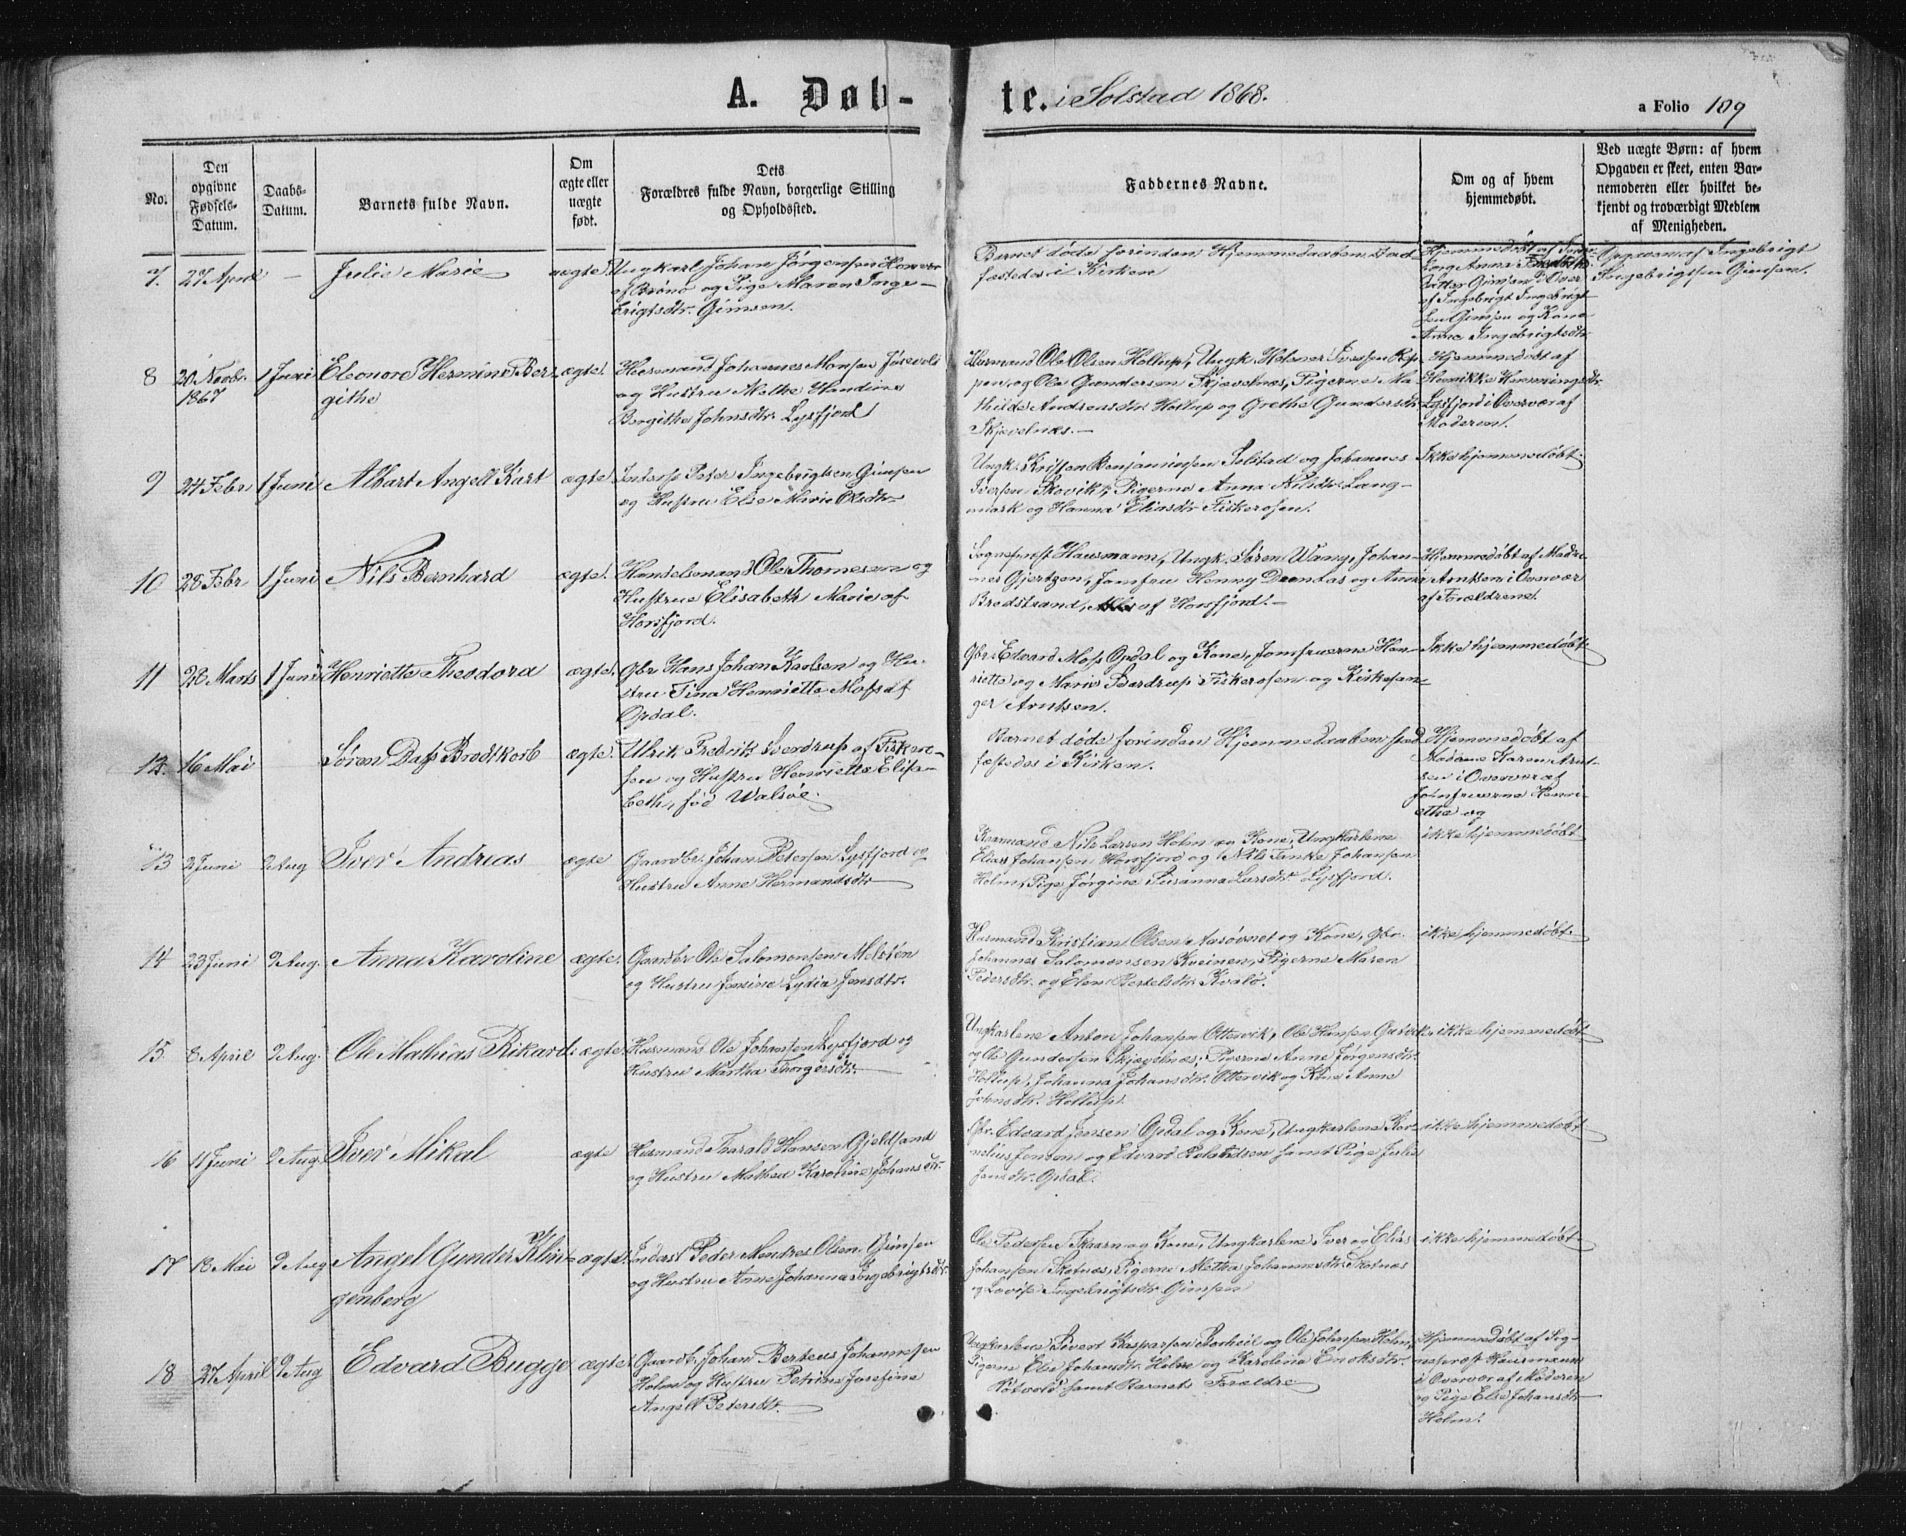 A. Døb-
te. i Solstad 1868.
a Folio 109
No.
Den
opgivne
Fødsels-
Datum.
Daabs-
Datum.
Barnets fulde Navn.
Om
ægte eller
uægte
født.
Dets
Forældres fulde Navn, borgerlige Stilling
og Opholdssted.
Faddernes Navne.
Om og af hvem
hjemmedøbt.
Ved uægte Børn: af hvem
Opgaven er skeet, enten Bar-
nemoderen eller hvilket be-
kjendt og troværdigt Medlem
af Menigheden.
7. 27 April - Julie Marie uægte. Ungkarl Johan Jørgensen
af Brønø og Pige Maren Inge-
brigtsdtr. Gimsen.
Barnet døde forinden Hjemmedaaben stad-
fæstedes i Kirken
Hjemmedøbt af
Anna
Gimsen i Over
af Ingebrigt Ingebrigt-
sen Gimsen og Kone
Anna Ingebrigtsdtr
Opgaven af Ingebrigt
Ingebrigtsen Gimsen.
8 20 Novbr. 1 Juni Eleonore Hermine Ber- ægte. Huusmand Johannes Monsen
1867 githe og Hustru Melke Handine
Bergithe Johnsdtr. Lysfjord
Husmand Ole Olsen Holtup, Ungk. Helmer Iversen
pen, og Ole Gundersen Skjevelnæs, Pigerne Ma-
thilde Andreasdtr Holtup og Grethe Gundersdtr
Skjevelnæs.-
Hjemmedøbt af
Henrikke Henningsdtr
Lysfjord i Overvær af
Moderen.
9 24 Febr 1 Juni Albart Angell Kurt ægte. Inderst Peter Ingebrigtsen Gimsen
og Hustru Else Marie Olsdtr
Ungk. Kristen Benjaminsen Solstad og Johannes
Iversen Skovik, Pigerne Anna Nilsdtr Lang-
mark og Hanna Eliasdtr Fiskerosen.
Ikke hjemmedøbt.
10 28 Febr 1 Juni Nils Bernhard ægte. Handelsmand Ole Thomesen og
Hustrue Elisabeth Marie af
Horsfjord.
Sogneprest Hausmann, Ungk. Søren Wang, Johan-
nes Gjertsen, Jomfru Henny Dundas og Anna
Bredstrand, Alle af Horsfjord.-
Hjemmedøbt af Mada.
Arntsen i Overvær
af Forældrene.
11 28 Marts 1 Juni Henriette Theodora ægte. Gbr. Hans Johan Karlsen og Hu-
stru Tina Henriette Mossdt
Opdal.
Gbr. Edvard Moss Opdal og Kone, Jomfruerne Hen-
riette og Marie Sverdrup Fiskerosen og Kirkesan-
ger Arntsen.
Ikke hjemmedøbt.
12. 16 Mai Søren Dass Brodtkorb ægte. Ulrik Fredrik Sverdrup af Fiskero-
sen og Hustru Henriette Elisa-
beth, fød Walsøe.
Barnet døde forinden Hjemmedaaben stad-
fæstedes i Kirken.
Hjemmedøbt af
Madame Karen Arnt-
sen i Overvær af
Jomfruerne Henri-
ethe og
13 2 Juni 9 Aug Iver Andrias ægte Gaardbr. Johan Petersen Lysfjord og
Hustru Anne Hermandsdtr
Husmand Nils Larsen Holm og Kone, Ungkarlene
Elias Johansen Horsfjord og Nils Tanke Johansen
Holm, Pige Jørgine Susanna Larsdtr. Lysfjord.
ikke hjemmedøbt
14 23 Juni 9 Aug. Anna Karoline ægte. Gaardbr Ole Salomonsen Melstén
og Hustru Jonine Lydia Jensdtr.
Husmand Kristian Olsen Aasøveret og Kone, Gbr.
Johannes Salomonsen Kveinen, Pigerne Maren
Pedersdtr. og Elen Bertelsdtr. Kvalø.
ikke hjemmedøbt.
15. 8 April 9 Aug. Ole Mathias Rikard ægte. Husmand Ole Johansen Lysfjord og
Hustru Martha Thorgersdtr.
Ungkarlene Anton Johansen Ottervik, Ole Hansen
og Ole Gundersen Skjævelnæs; Pigerne Anne Jørgensdtr.
Hollup, Johanna Johansdtr. Ottervik og Kone Anne
Johnsdtr. Hollup.
ikke hjemmedøbt
16 11 Juni 9 Aug. Iver Mikal ægte Husmand Harald Hansen Gjeldsand
og Hustru Mathea Karoline Johansdtr.
Gbr. Edvard Jensen Opdal og Kone, Ungkarlene Kor-
nelius Jensen og Edvard samt Pige Julie
Jensdtr. Opdal.
ikke hjemmedøbt
17 13 Mai 9 Aug Angel Gunder Klin- ægte. Inderst Peder Mendres Olsen Gimsen
genberg og Hustru Anne Johanna Ingebrigtsdtr.
Ole Pedersen Skaarn og Kone, Ungkarlene Iver og Elias
Johansen Skotnæs, Pigerne Metha Johannesdtr. Skotnæs
og Lovise Ingebrigtsdtr Gimsen
ikke hjemmedøbt
18 27 April 9 Aug Edvard Bugge ægte. Gaardbr. Johan Berteus Johannesen
Holm og Hustru Petrine Josefine
Angell Petersdtr.
Ungkarlene Sivert Kaspersen og Ole Johnsen Holm,
Pigerne Else Johansdtr. Holm og Karoline Eriksdtr.
samt Barnets Forældre
Hjemmedøbt af Sog-
neprest Hausmann
i Overvær af Moderen
og Pige Else Johansdtr
Holm.